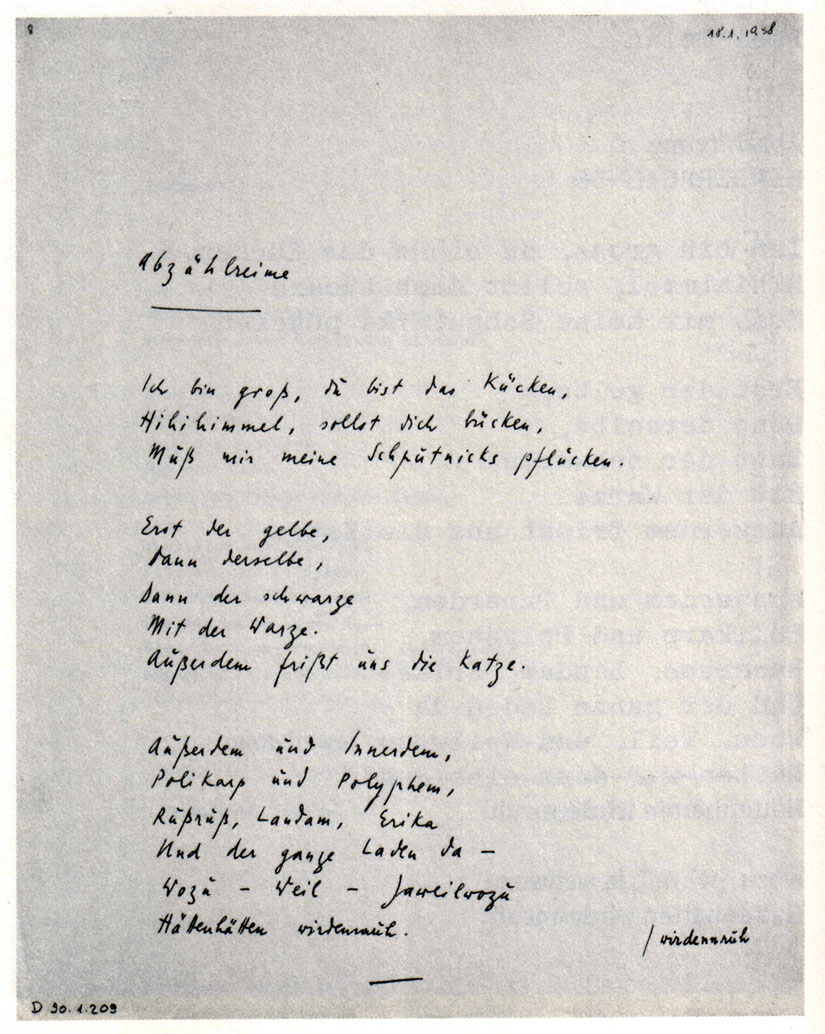 8
18.1.1958
Abzählreime
Ich bin groß, du bist das Kücken,
Hihihimmel, sollst dich bücken,
Muß mir meine Schputnicks pflücken.
Erst der gelbe,
Dann derselbe,
Dann der schwarze
Mit der Warze.
Außerdem frißt uns die Katze.
Außerdem und Innerdem,
Polikarp und Polyphem,
Rußruß, Landam, Erika
Und der ganze Laden da –
Wozu – Weil – Jaweilwozu
Hättenhätten wirdenruh.
/ wirdennruh
D 90.1.209